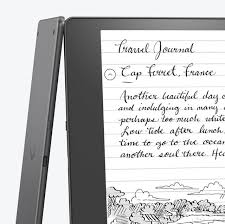 Travel Journal
Cap Ferret, France
Another beautiful day o
and indulging in many
perhaps too much white
Low tide after lunch
time to go to the ocean
another soul there. Hea